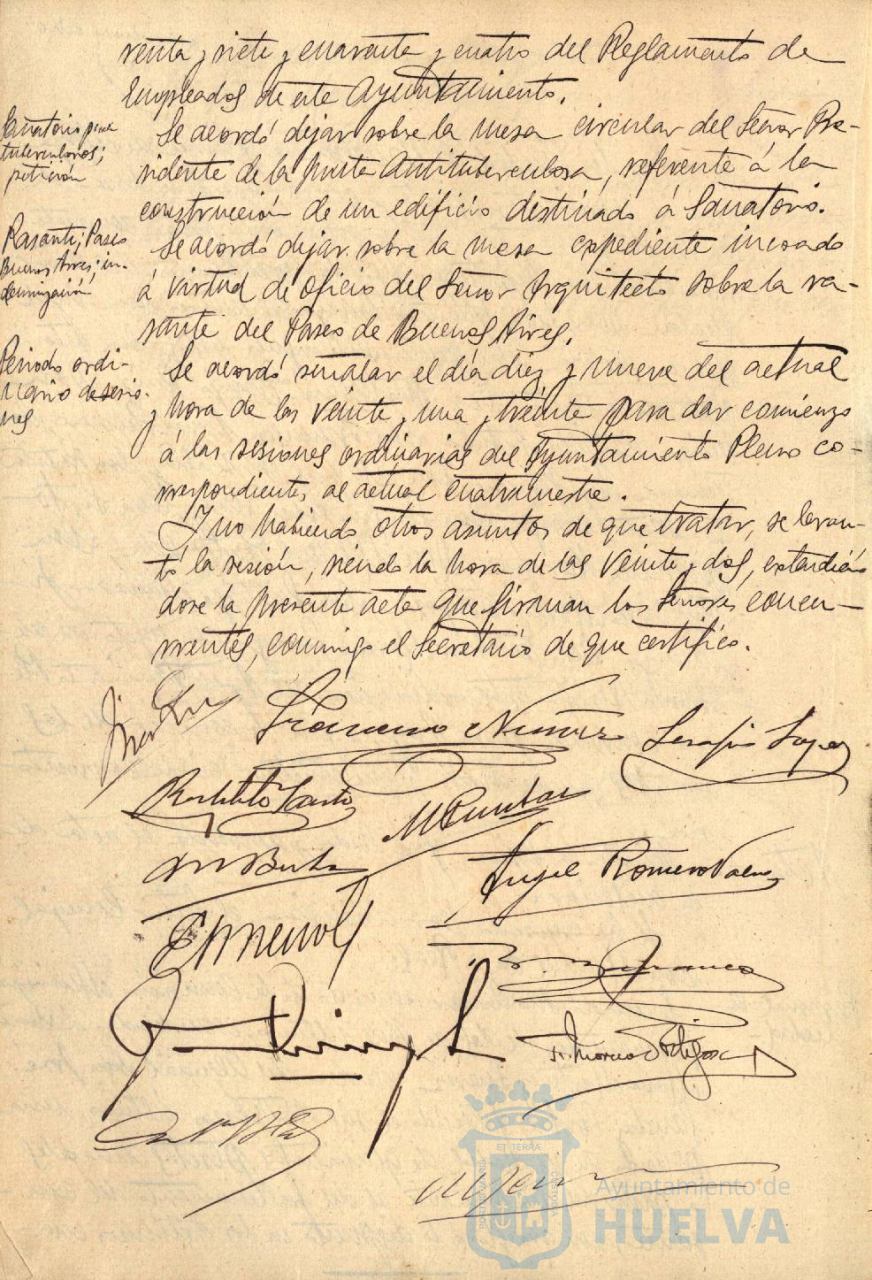 renta y siete y cuarenta y cuatro del Reglamento de
Empleados de este Ayuntamiento.
Sanatorio para
tuberculosos;
petición
Se acordó dejar sobre la mesa circular del Señor Pre-
sidente de la Junta Antituberculosa, referente á la
construcción de un edificio destinado á Sanatorio.
Rasante; Paseo
Buenos Aires; in-
demnización
Se acordó dejar sobre la mesa expediente incoado
á virtud de oficio del Señor Arquitecto sobre la ra-
sante del Paseo de Buenos Aires.
Periodo ordi-
nario de sesio-
nes
Se acordó señalar el día diez y nueve del actual
y hora de las veinte y una y treinta para dar comienzo
á las sesiones ordinarias del Ayuntamiento Pleno co-
rrespondientes al actual cuatrimestre.
Y no habiendo otros asuntos de que tratar, se levan-
tó la sesión, siendo la hora de las veinte y dos, extendién-
dose la presente acta que firman los Señores concu-
rrentes, conmigo el Secretario de que certifico.
Francisco Núñez
Serafín López
Angel Romero
ET TERRA
Ayuntamiento de
HUELVA